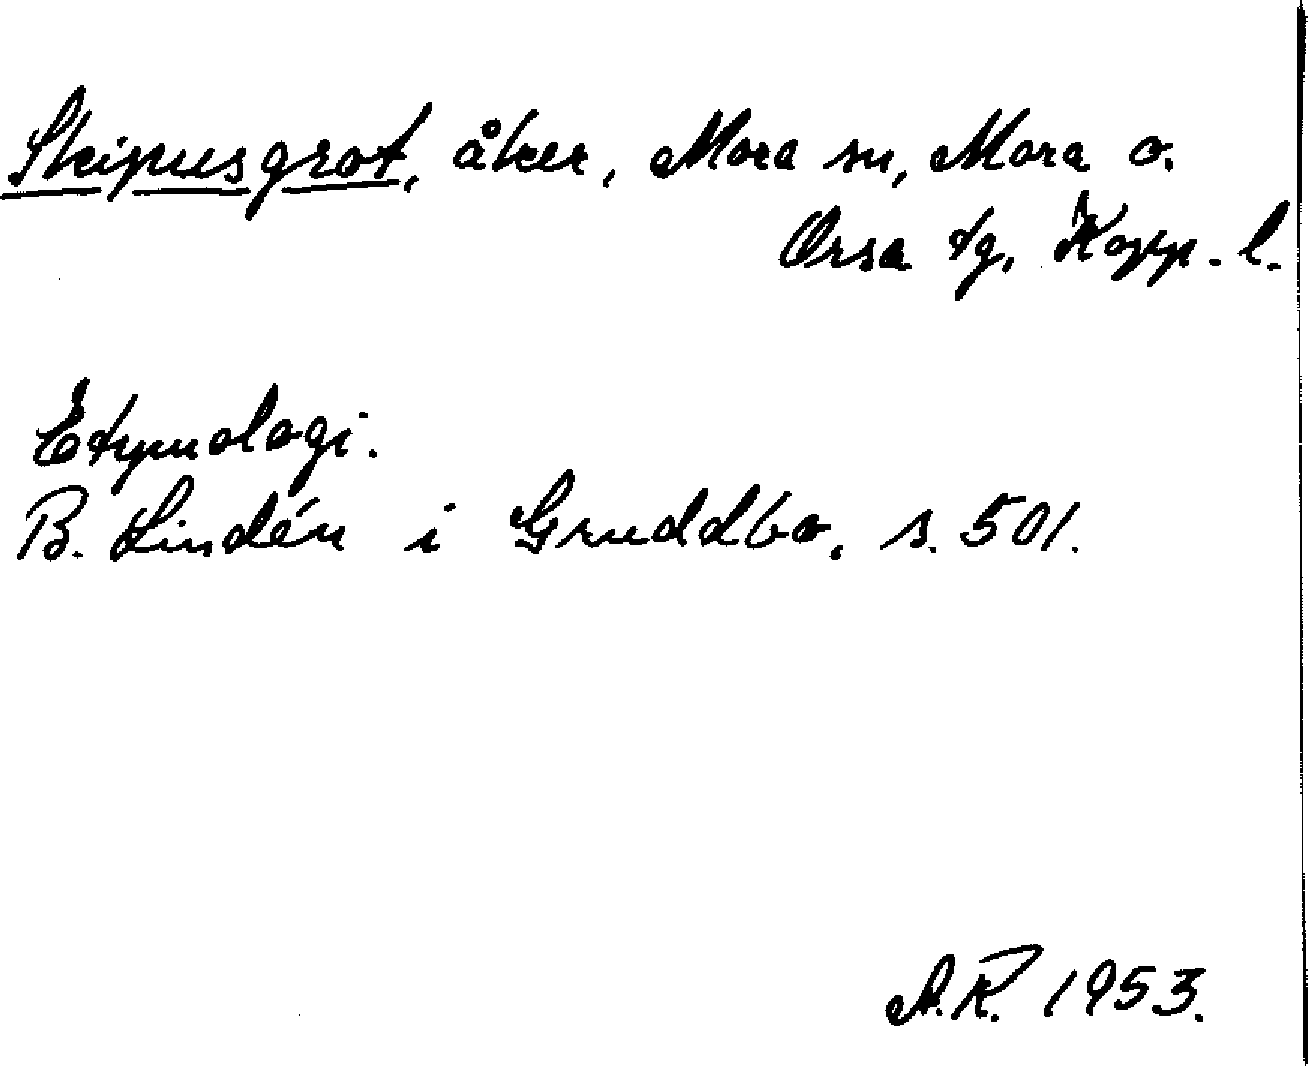 Skipusgrot, åker, Mora sn, Mora o.
Orsa tg, Kopp. l.
Etymologi.
B. Lindén i Gruddbo, s. 501.
A.R. 1953.